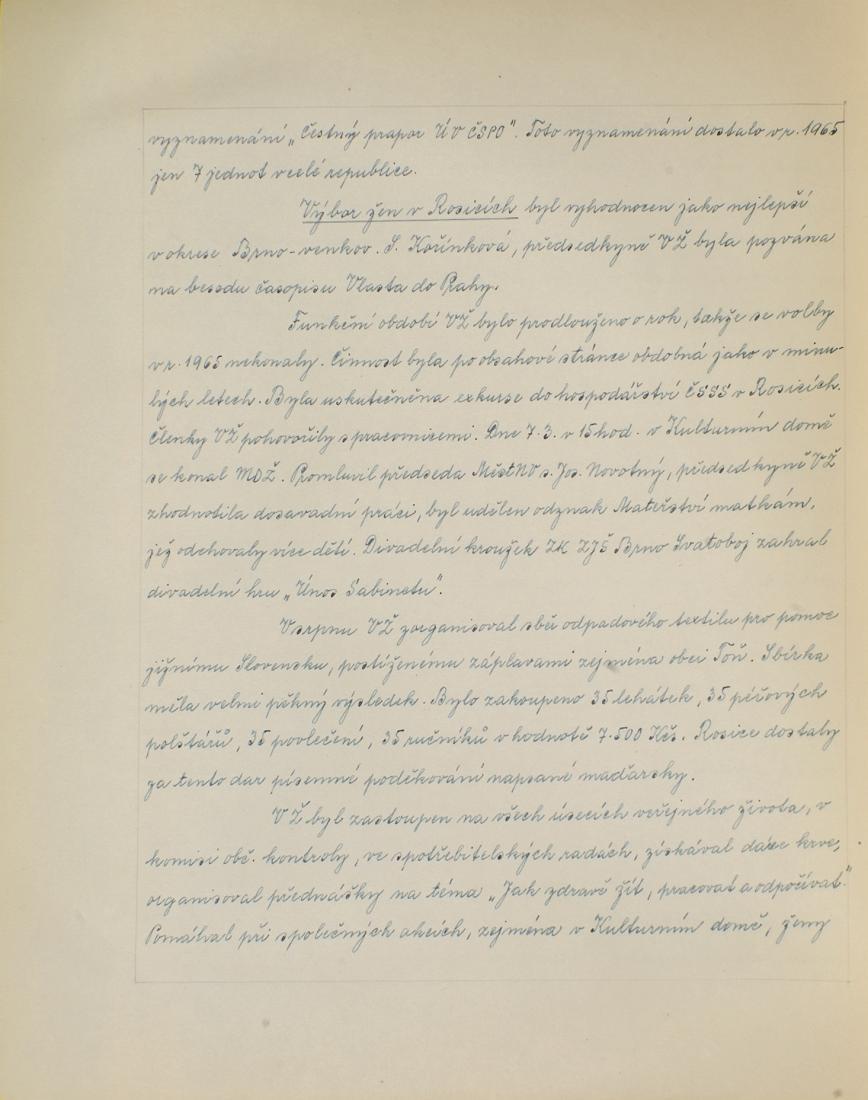 vyznamenání „Čestný prapor ÚV ČSPO". Toto vyznamenání dostalo v r. 1965
jen 7 jednot v celé republice.
Výbor žen v Rosicích byl vyhodnocen jako nejlepší
v okrese Brno-venkov. S. Kořínková, předsedkyně VŽ byla pozvána
na besedu časopisu Vlasta do Prahy.
Funkční období VŽ bylo prodlouženo o rok, takže se volby
v r. 1965 nekonaly. Činnost byla po obsahové stránce obdobná jako v minu-
lých letech. Byla uskutečněna exkurse do hospodářství ČSSS v Rosicích.
Členky VŽ pohovořily s pracovnicemi. Dne 7.3. v 15 hod. v Kulturním domě
se konal MDŽ. Promluvil předseda MěstNV s. Jos. Novotný, předsedkyně VŽ
zhodnotila dosavadní práci, byl udělen odznak Mateřství matkám,
jež odchovaly více dětí. Divadelní kroužek ZK ZJŠ Brno Svatoboj zahrál
divadelní hru „Únos Sabinetu".
V srpnu VŽ zorganisoval sběr odpadového textilu pro pomoc
jižnímu Slovensku, postiženému záplavami zejména obci Toň. Sbírka
měla velmi pěkný výsledek. Bylo zakoupeno 35 lehátek, 35 péřových
polštářů, 35 povlečení, 35 ručníků v hodnotě 7.500 Kčs. Rosice dostaly
za tento dar písemné poděkování napsané maďarsky.
VŽ byl zastoupen na všech úsecích veřejného života, v
komisi obč. kontroly, ve spotřebitelských radách, získával dárce krve,
organisoval přednášky na téma „Jak zdravě žít, pracovat a odpočívat."
Pomáhal při společných akcích, zejména v Kulturním domě, ženy